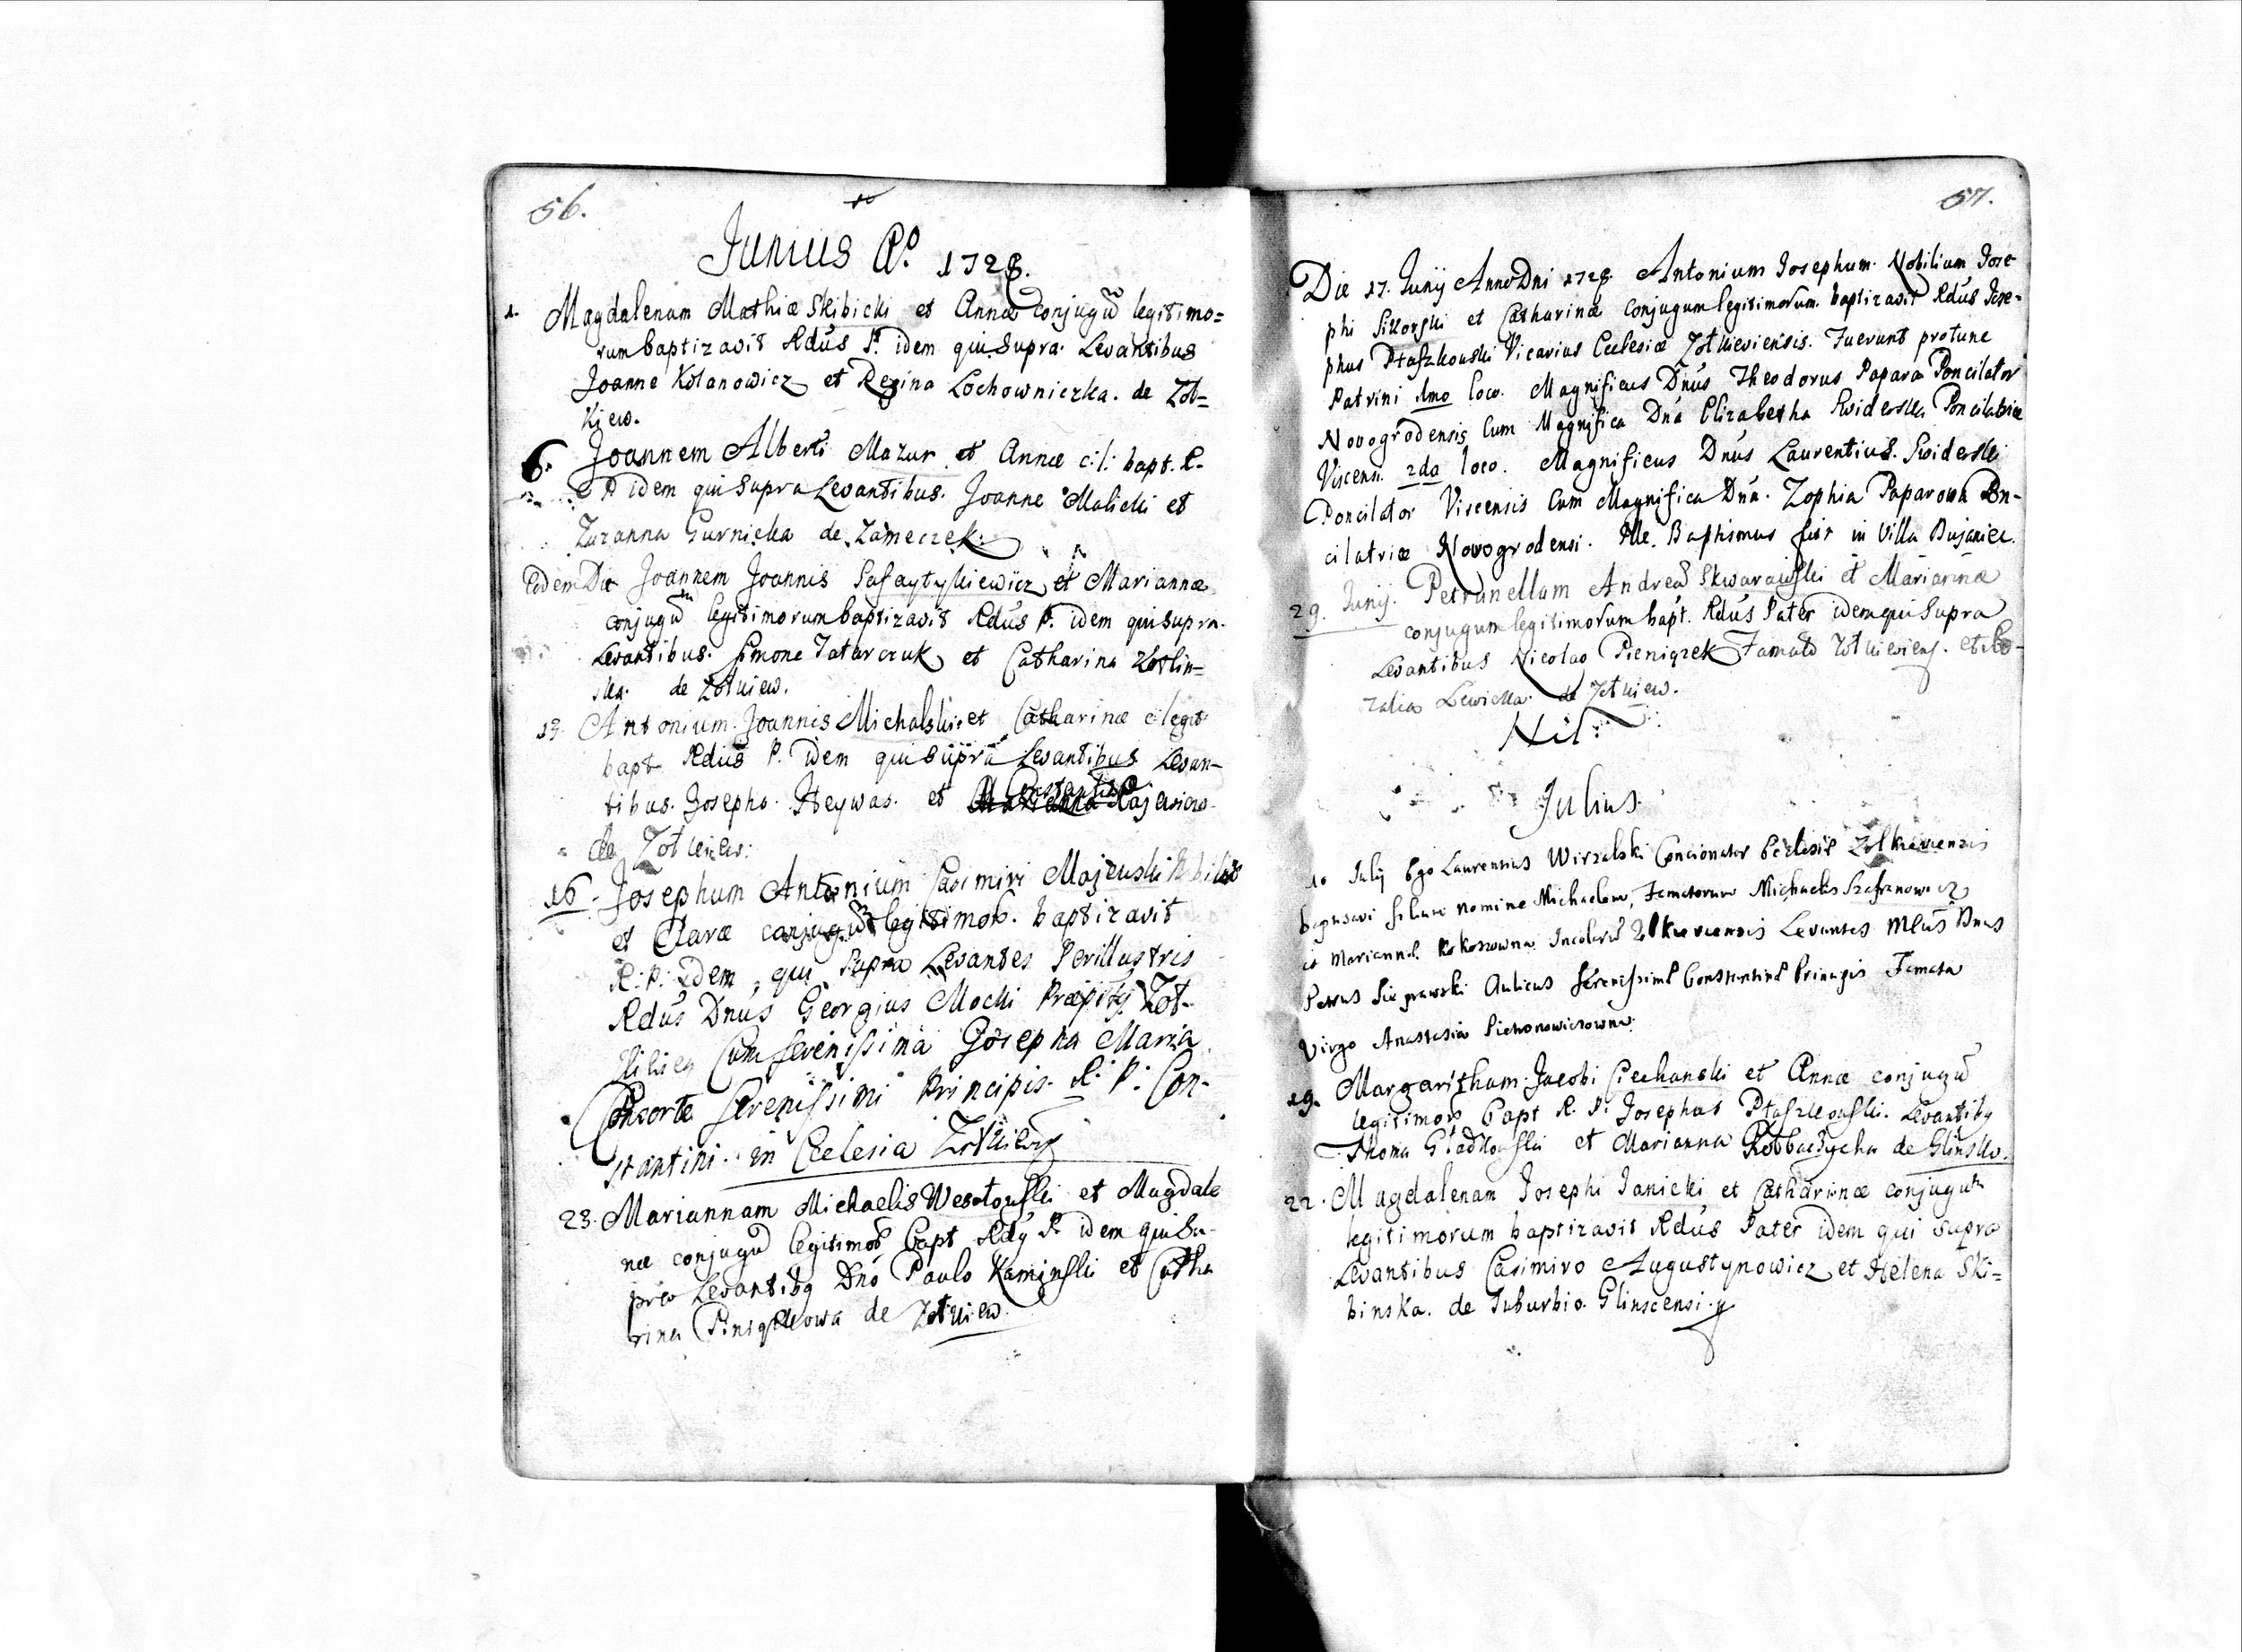 56.
Junius Aº. 1728.
1. Magdalenam Mathiæ Skibicki et Annæ conjugũ legitimo=
rum baptizavit Rdus P. idem qui supra. Levantibus
Joanne Kolanowicz et Regina Lochowniczka. de Zol=
kiew.
6. Joannem Alberti Mazur et Annæ c: l: bapt. R.
P idem qui supra Levantibus. Joanne Malicki et
Zuzanna Gurnicka de Zameczek.
Eodem Die Joannem Joannis et Mariannæ
conjugũ legitimorum baptizavit Rdus P. idem qui supra.
Levantibus. Simone Tatarczuk et Catharina
ska. de Zołkiew.
13. Antonium Joannis Michalski et Catharinæ c: legit:
bapt Rdus P. idem qui supra Levantibus Levan-
tibus. Josepho. Heywas. et Constantina
de Zołkiew.
16. Josephum Antonium Casimiri Majewski
et Claræ conjugũ legitimor. baptizavit
R: P: idem qui supra Levantes Perillustris
Rdus Dnus Georgius Mocki Zoł-
Cum Serenissima Josepha Maria
Consorte Serenissimi Principis. R: P: Con-
stantini. in Ecclesia
23. Mariannam Michaelis Wesołouski et Magdale
næ conjugũ legitimor bapt Rdus P. idem qui Su-
pra Levantibq Dno Paulo Kaminski et Catha
rina de Zołkiew.
57.
Die 17. Junij Anno Dni 1728. Antonium Josephum. Nobilium Jose
phi Sikorski et Catharinæ Conjugum legitimorum. baptizavit Rdus Jose-
phus Ptaszkouski Vicarius Ecclesiæ Zołkieviensis. Fuerunt protunc
Patrini 1mo loco. Magnificus Dnus Theodorus Papara Poncilator
Novogrodensis Cum Magnifica Dna Elizabetha Swiderska Poncilatrice
Viscensi. 2do loco. Magnificus Dnus Laurentius. Swiderski
Poncilator Viscensis Cum Magnifica Dna. Zophia Paparowa Pon-
cilatrice Novogrodensi. Ille Baptismus fuit in Villa Bujaniec.
29. Junij. Petrunellam Andreæ Skwarauski et Mariannæ
conjugum legitimorum bapt. Rdus Pater idem qui Supra
Levantibus Nicolao Pieniązek Famato Zołkieviens. et Ro-
zalia Lewicka. de Zołkiew.
Nil
Julius.
10 July Ego Laurentius Wirzalski Concionator Ecclesiæ Zolkieviensis
filium nomine Michaelem, Famatorum Michaelis Szafranowicz
et Mariannæ Kokoszowna Levantes Dnus
Petrus Aulicus Serenissimi Constantini Principis Famata
Virgo Anastasia Pichonowiczowna.
19. Margaritham. Jacobi Ciechanski et Annæ conjugũ
legitimor bapt R. P: Josephus Ptaszkouski. Levantibq
Thoma Gładkouski et Marianna de Glinsko.
22. Magdalenam Josephi Janicki et Catharinæ conjugum
legitimorum baptizavit Rdus Pater idem qui supra
Levantibus Casimiro Augustynowicz et Helena Ski=
binska. de Suburbio. Glinscensi.